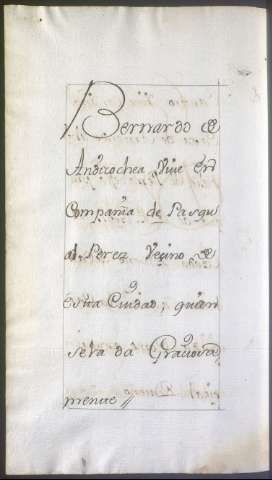 Bernardo de
Andicochea Vive en
Compañia de Pasqu
al Perez Veçino de
esta Ciudad; quien
se la da Graciosa
mente //